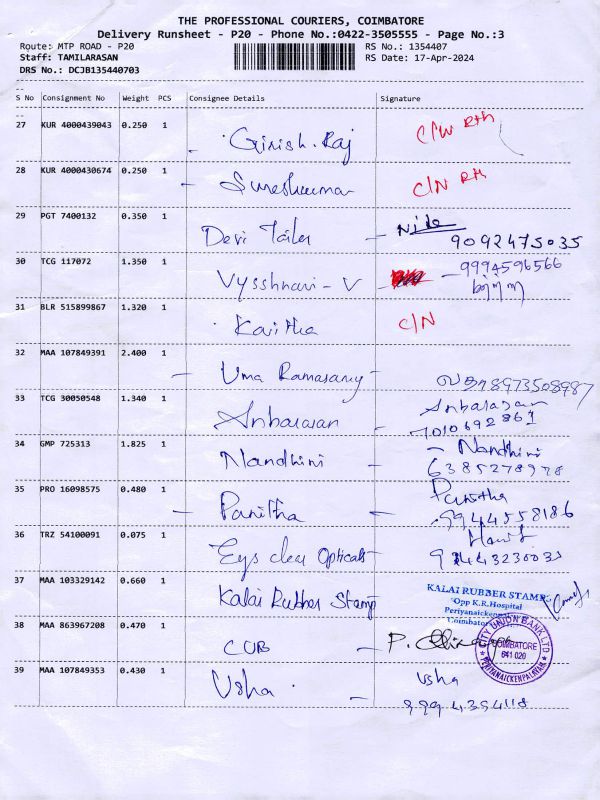 THE PROFESSIONAL COURIERS, COIMBATORE
Delivery Runsheet - P20 - Phone No.:0422-3505555 - Page No.:3
Route: MTP ROAD - P20 RS No.: 1354407
Staff: TAMILARASAN RS Date: 17-Apr-2024
DRS No.: DCJB135440703
S No Consignment No Weight PCS Consignee Details Signature
27 KUR 4000439043 0.250 1 Girish. Raj C/N Rth
28 KUR 4000430674 0.250 1 Sureshkumar C/N Rth
29 PGT 7400132 0.350 1 Devi Tailer
9092475035
30 TCG 117072 1.350 1 Vysshnavi - V 9994596566
31 BLR 515899867 1.320 1 Kavitha C/N
32 MAA 107849391 2.400 1 Uma Ramasamy 8973508987
33 TCG 30050548 1.340 1 Anbarasan Anbarasan
7010692861
34 GMP 725313 1.825 1 Nandhini - Nandhini
6385278978
35 PRO 16098575 0.480 1 Panitha Panitha
9944558186
36 TRZ 54100091 0.075 1 Eyes clear Opticals
37 MAA 103329142 0.660 1 Kalai Rubber Stamp KALAI RUBBER STAMPS
Opp K.R.Hospital
38 MAA 863967208 0.470 1 CUB P.
CITY UNION BANK LTD
COIMBATORE
641 020
PERIYANAICKENPALAYAM
39 MAA 107849353 0.430 1 Usha Usha
9994354118